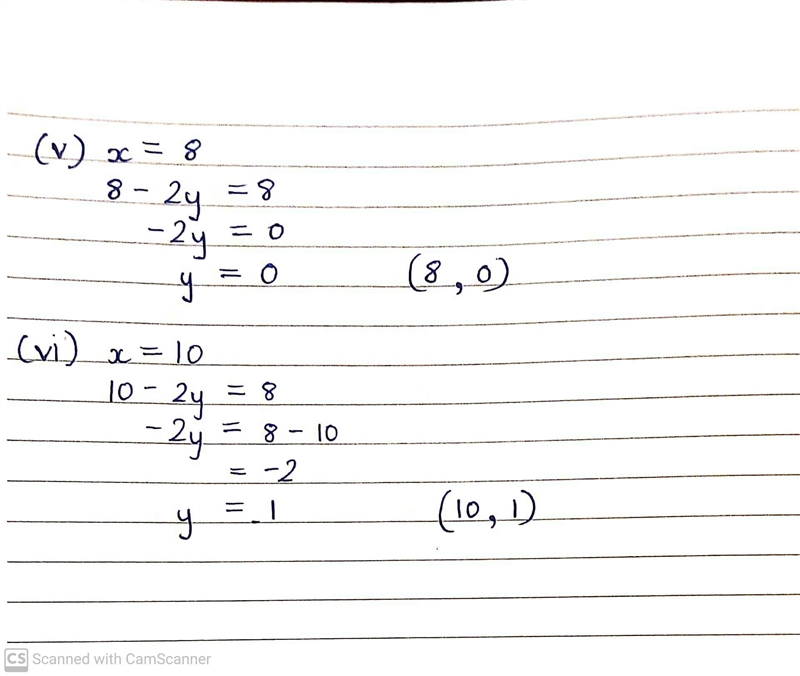 (v) x = 8
8 - 2y = 8
-2y = 0
y = 0 (8, 0)
(vi) x = 10
10 - 2y = 8
-2y = 8 - 10
= -2
y = 1 (10, 1)
CS Scanned with CamScanner